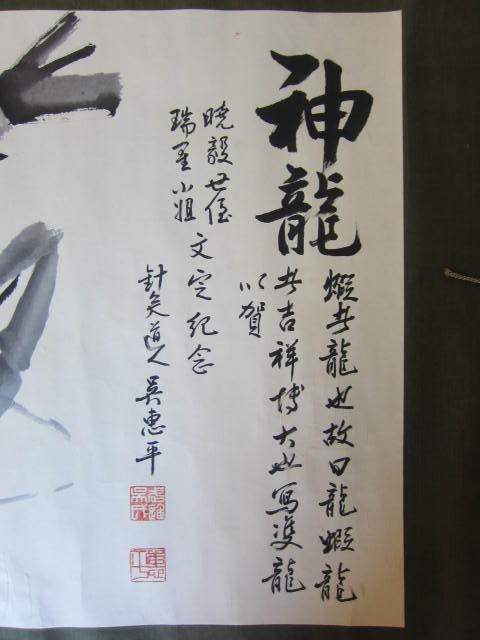 神龍
蝦者龍也故曰龍蝦龍
者吉祥博大也寫雙龍
以賀
曉毅世侄
瑞星小姐
文定紀念
針灸道人吳惠平